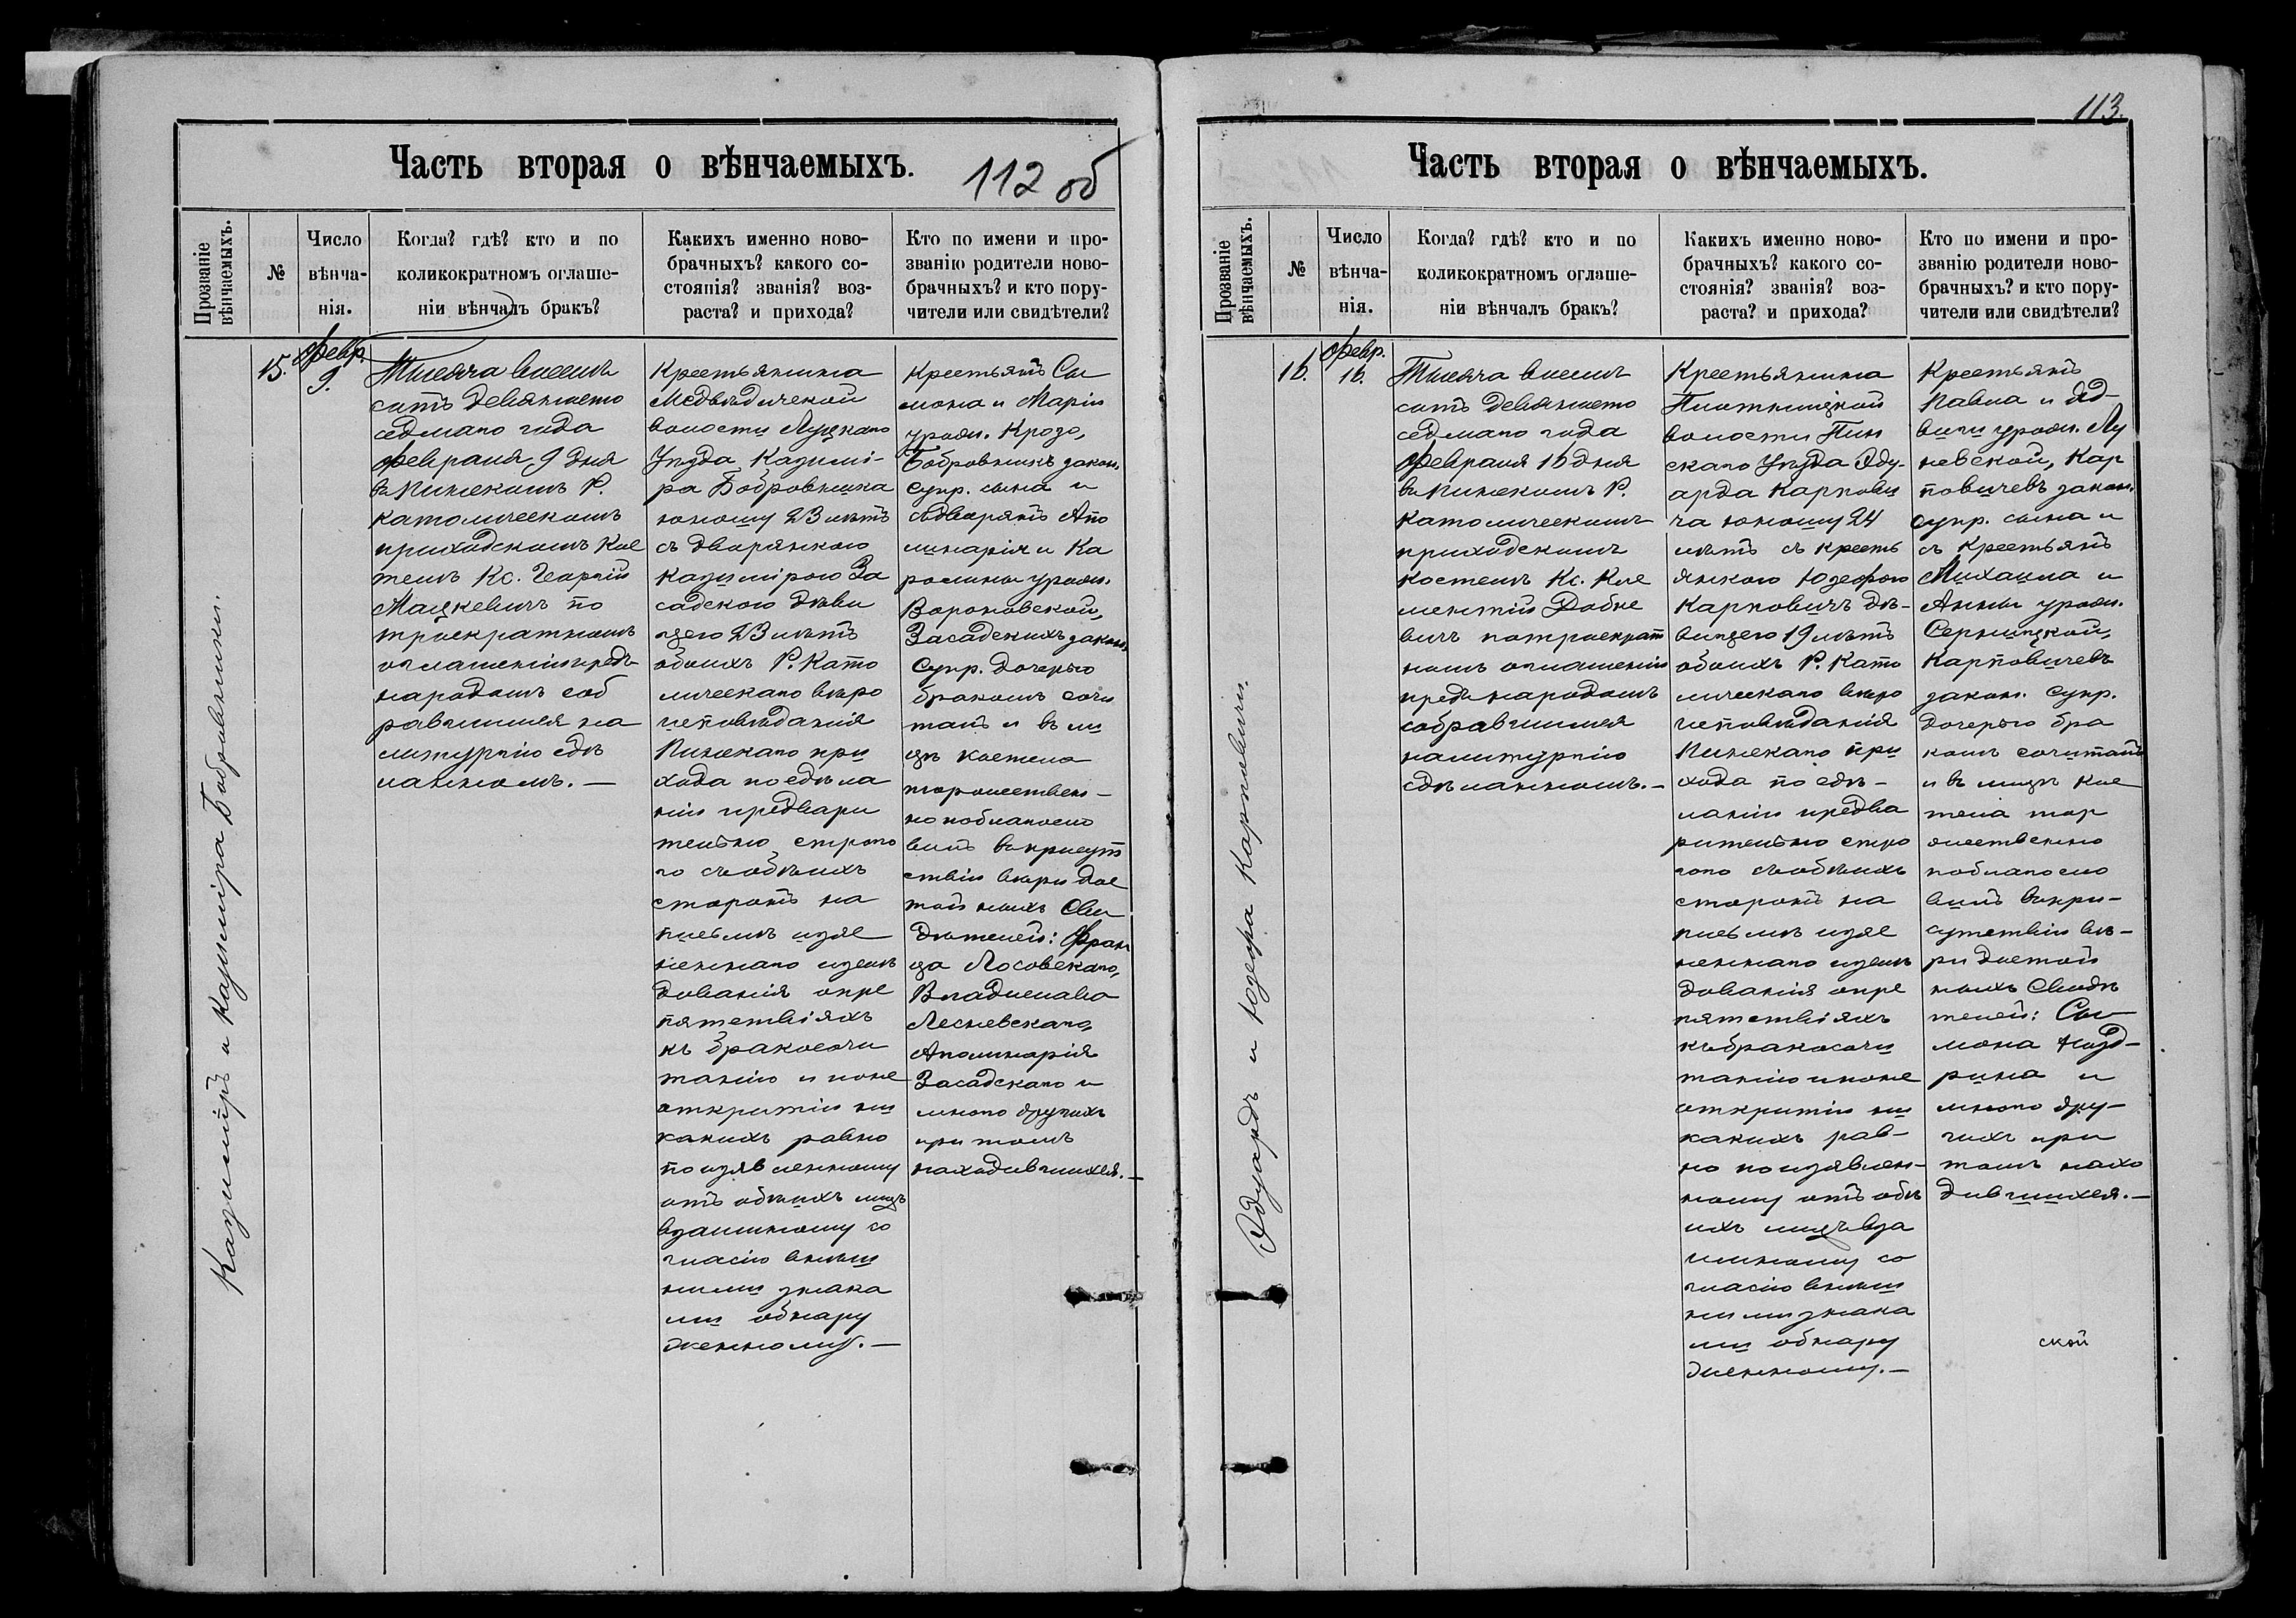 Часть вторая о вѣнчаемыхъ.
112 об
Прозваніе вѣнчаемыхъ.
№
Число вѣнча-нія.
Когда? гдѣ? кто и по
коликократномъ оглаше-
ніи вѣнчалъ бракъ?
Какихъ именно ново-
брачныхъ? какого со-
стоянія? званія? воз-
раста? и прихода?
Кто по имени и про-
званію родители ново-
брачныхъ? и кто пору-
чители или свидѣтели?
Казимиръ и Казиміра Бобровники.
15.
Февр.
9.
Тысяча восемь
сотъ девяносто
седмаго года
Февраля 9 дня
въ Пинскомъ Р.
католическомъ
приходскомъ Кос
телѣ Кс. Георгій
Мацкевичъ по
троекратномъ
оглашеніи предъ
народомъ соб
равшимся на
литургію сдѣ
ланномъ. —
Крестьянина
Медвѣдической
волости Луцкаго
Уѣзда Казимі-
ра Бобровника
юношу 23 лѣтъ
съ дворянкою
Казимірою За
садскою дѣви
цею 23 лѣтъ
обоихъ Р. Като
лическаго вѣро
исповѣданія
Пинскаго при
хода по сдѣла
ніи предвари
тельно строго
го съ обѣихъ
сторонъ на
письмѣ изяс
неннаго изслѣ
дованія о пре
пятствіяхъ
къ бракосочи
танію и по не
открытіи ни
какихъ равно
по изявленному
отъ обѣихъ лицъ
взаимному со
гласію внѣш
ними знака
ми обнару
женному. —
Крестьянъ Си
мона и Маріи
урожд. Крозо,
Бобровникъ закон.
супр. сына и
дворянъ Апо
линарія и Ка
ролины урожд.
Вороновской,
Засадскихъ закон.
супр. дочерью
бракомъ соче
талъ и въ ли
цѣ костела
торжествен-
но поблагосло
вилъ въ присут
ствіи вѣри дос
тойныхъ Сви
дѣтелей: Фран
ца Лосовскаго,
Владислава
Лесневскаго,
Аполинарія
Засадскаго и
много другихъ
при томъ
находившихся. —
113.
Часть вторая о вѣнчаемыхъ.
Прозваніе вѣнчаемыхъ.
№
Число вѣнча-нія.
Когда? гдѣ? кто и по
коликократномъ оглаше-
ніи вѣнчалъ бракъ?
Какихъ именно ново-
брачныхъ? какого со-
стоянія? званія? воз-
раста? и прихода?
Кто по имени и про-
званію родители ново-
брачныхъ? и кто пору-
чители или свидѣтели?
Эдуардъ и Юзефа Карповичи.
16.
Февр.
16.
Тысяча восемь
сотъ девяносто
седмаго года
Февраля 16 дня
въ Пинскомъ Р.
Католическомъ
приходскомъ
костелѣ Кс. Кле
ментій
вичъ по троекрат
номъ оглашеніи
предъ народомъ
собравшимся
на литургію
сдѣланномъ. —
Крестьянина
Плотницкой
волости Пин
скаго Уѣзда Эду-
арда Карпови
ча юношу 24
лѣтъ съ кресть
янкою Юзефою
Карповичъ дѣ-
вицею 19 лѣтъ
обоихъ Р. Като
лическаго вѣро
исповѣданія
Пинскаго при
хода по сдѣ-
ланіи предва
рительно стро
гого съ обѣихъ
сторонъ на
письмѣ изяс
неннаго изслѣ
дованія о пре
пятствіяхъ
къ бракосочи
танію и по не
открытіи ни
какихъ рав-
но по изявлен-
ному отъ обѣ
ихъ лицъ вза
имному со
гласію внѣш
ними знака
ми обнару
женному. —
Крестьянъ
Павла и Яд-
виги урожд. Лу
невской, Кар
повичевъ закон.
супр. сына и
съ Крестьянъ
Михаила и
Анны урожд.
Серницкой,
Карповичевъ
закон. супр.
дочерью бра
комъ сочиталъ
и въ лицѣ кос
тела тор
жественно
поблагосло
вилъ въ при-
сутствіи вѣ-
ри достой
ныхъ Свидѣ
телей: Си
мона
рина и
много дру-
гихъ при
томъ нахо
дившихся. —
ской